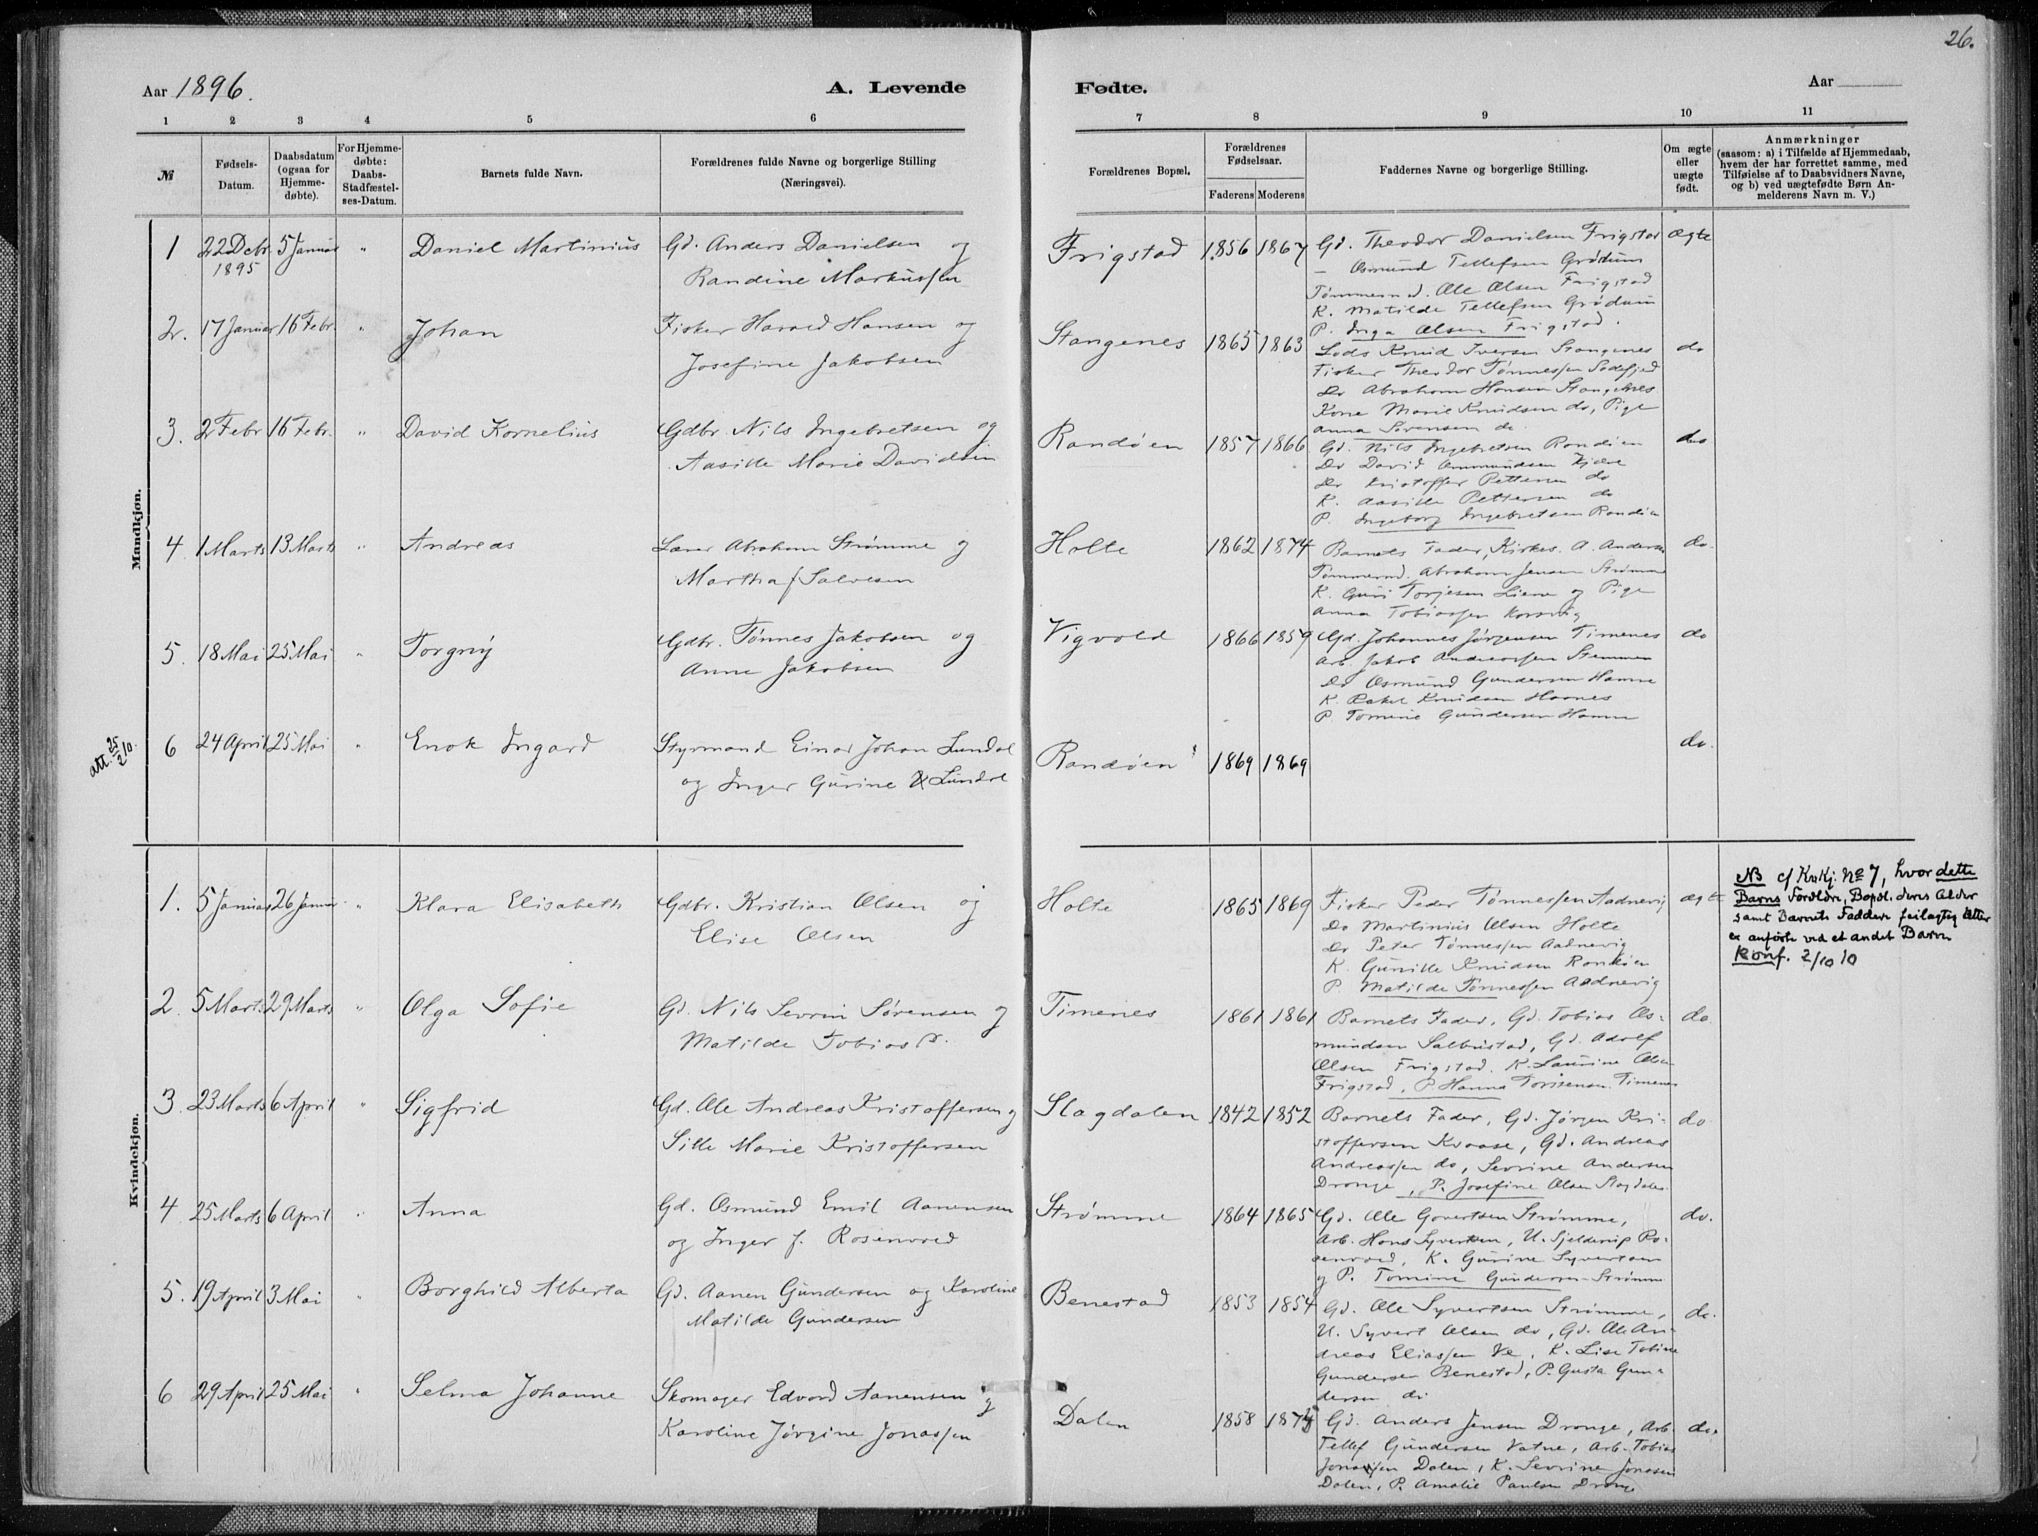 26.
Aar 1896.
A. Levende
Fødte.
Aar
1 2 3 4 5 6 7 8 9 10 11
№
Fødsels-
Datum.
Daabsdatum
(ogsaa for
Hjemme-
døbte).
For Hjemme-
døbte:
Daabs-
Stadfæstel-
ses-Datum.
Barnets fulde Navn.
Forældrenes fulde Navne og borgerlige Stilling
(Næringsvei).
Forældrenes Bopæl.
Forældrenes
Fødselsaar.
Faderens Moderens
Faddernes Navne og borgerlige Stilling.
Om ægte
eller
uægte
født.
Anmærkninger
(saasom: a) i Tilfælde af Hjemmedaab,
hvem der har forrettet samme, med
Tilføielse af to Daabsvidners Navne,
og b) ved uægtefødte Børn An-
melderens Navn m. V.)
Mandkjøn.
1 22 Decbr. 5 Januar " Daniel Martinius Gd. Anders Danielsen og
1895
Randine Markussen
Frigstad 1856 1867 Gd. Theodor Danielsen Frigstad ægte
– Osmund Tellefsen Grødum
Tømmermd. Ole Olsen Frigstad
K. Matilde Tellefsen Grødum
P. Inga Olsen Frigstad.
2. 17 Januar 16 Febr. " Johan Fisker Harald Hansen og
Josefine Jakobsen
Stangenes 1865 1863 Lods Knud Iversen Stangenes do
Fisker Theodor Tønnessen Sodefjed
Do Abraham Hansen Stangenes
Kone Marie Knudsen do, Pige
Anna Sørensen do
3. 2 Febr 16 Febr. " David Kornelius Gdbr. Nils Ingebretsen og
Aasille Marie Davidsen
Randøen 1857 1866 Gd. Nils Ingebretsen Randøen do
Do David Ommundsen Kjære
Do Kristoffer Pettersen do
K. Aasille Pettersen do
P. Ingeborg Ingebretsen Randøen
4. 1 Marts 13 Marts " Andreas Lærer Abraham Strømme og
Martha f. Salvesen
Holte 1862 1874 Barnets Fader, Kirkes. A. Andersen do.
Tømmermd. Abraham Jensen Strømme
K. Guri Torjesen Liene og Pige
Anna Tobiassen Korsvig
5. 18 Mai 25 Mai " Torgny Gdbr. Tønnes Jakobsen og
Anne Jakobsen
Vigvold 1866 1859 Gd. Johannes Jørgensen Timenes do
Arb. Jakob Andreassen Stemmen
Do Osmund Gundersen Hamre
K. Rakel Knudsen Haanes
P. Tomine Gundersen Hamre
att. 25/2 10.
6 24 April 25 Mai " Enok Ingard Styrmand Einar Johan Lundal
og Inger Gurine Lundal
Randøen 1869 1869 do.
Kvindekjøn.
1. 5 Januar 26 Januar " Klara Elisabeth Gdbr. Kristian Olsen og
Elise Olsen
Holte 1865 1869 Fisker Peder Tønnessen Aadnevig ægte
Do Martinius Olsen Holte
Do Peter Tønnessen Aadnevig
K. Gunille Knudsen Randøen
P. Matilde Tønnessen Aadnevig
NB cf Kvkj. No 7, hvor dette
Barns Forældre, Bopæl. deres Alder
samt Barnets Faddere feilagtig
er anførte ved et andet Barn
Konf. 2/10 10
2. 5 Marts 29 Marts " Olga Sofie Gd. Nils Sevrin Sørensen og
Matilde Tobias D.
Timenes 1861 1861 Barnets Fader, Gd. Tobias Os- do
mundsen Salbustad, Gd. Adolf
Olsen Frigstad. K. Laurine Olsen
Frigstad, P. Hanna Torisensen Timenes
3. 23 Marts 6 April " Sigfrid Gd. Ole Andreas Kristoffersen og
Sille Marie Kristoffersen
Slagdalen 1842 1852 Barnets Fader, Gd. Jørgen Kri- do
stoffersen Kvaase, Gd. Andreas
Andreassen do, Sevrine Andersen
Drange, P. Josefine Olsen Slagdalen
4 25 Marts 6 April " Anna Gd. Osmund Emil Aanensen
og Inger f. Rosenvold
Strømme 1864 1865 Gd. Ole Govertsen Strømme, do.
Arb. Hans Syvertsen, U. Hjelderup Ro-
senvold, K. Gurine Syvertsen
og P. Tomine Gundersen Strømme
5. 19 April 3 Mai " Borghild Alberta Gd. Aanen Gundersen og Karoline
Matilde Gundersen
Benestad 1853 1854 Gd. Ole Syvertsen Strømme, do.
U. Syvert Olsen do, Gd. Ole An-
dreas Eliassen Ve, K. Lise Tobine
Gundersen Benestad, P. Gusta Gun-
dersen do
6 29 April 25 Mai " Selma Johanne Skomager Edvard Aanensen og
Karoline Jørgine Jonassen
Dalen 1858 1874 Gd. Anders Jensen Drange, Arb. do.
Tellef Gundersen Vatne, Arb. Tobias
Jonassen Dalen, K. Sevrine Jonassen
Dalen, P. Amalie Paulsen Drange